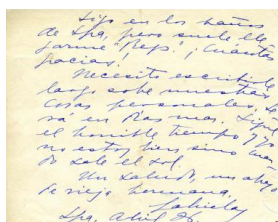 Sigo en los baños
de Spa, pero suele lle
garme "Reps". ¡Cuántas
gracias!
Necesito escribirle
largo sobre nuestras
cosas personales. Se
rá en Ras mas. Sigue
el horrible tiempo y yo
no estoy bien sino cuan
do sale el sol.
Un saludo, un abrazo
de vieja hermana.
Gabriela
Spa, abril 26.